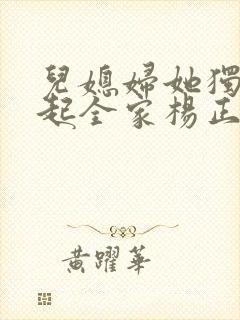 兒媳婦她獨
起全家楊正
黃躍華